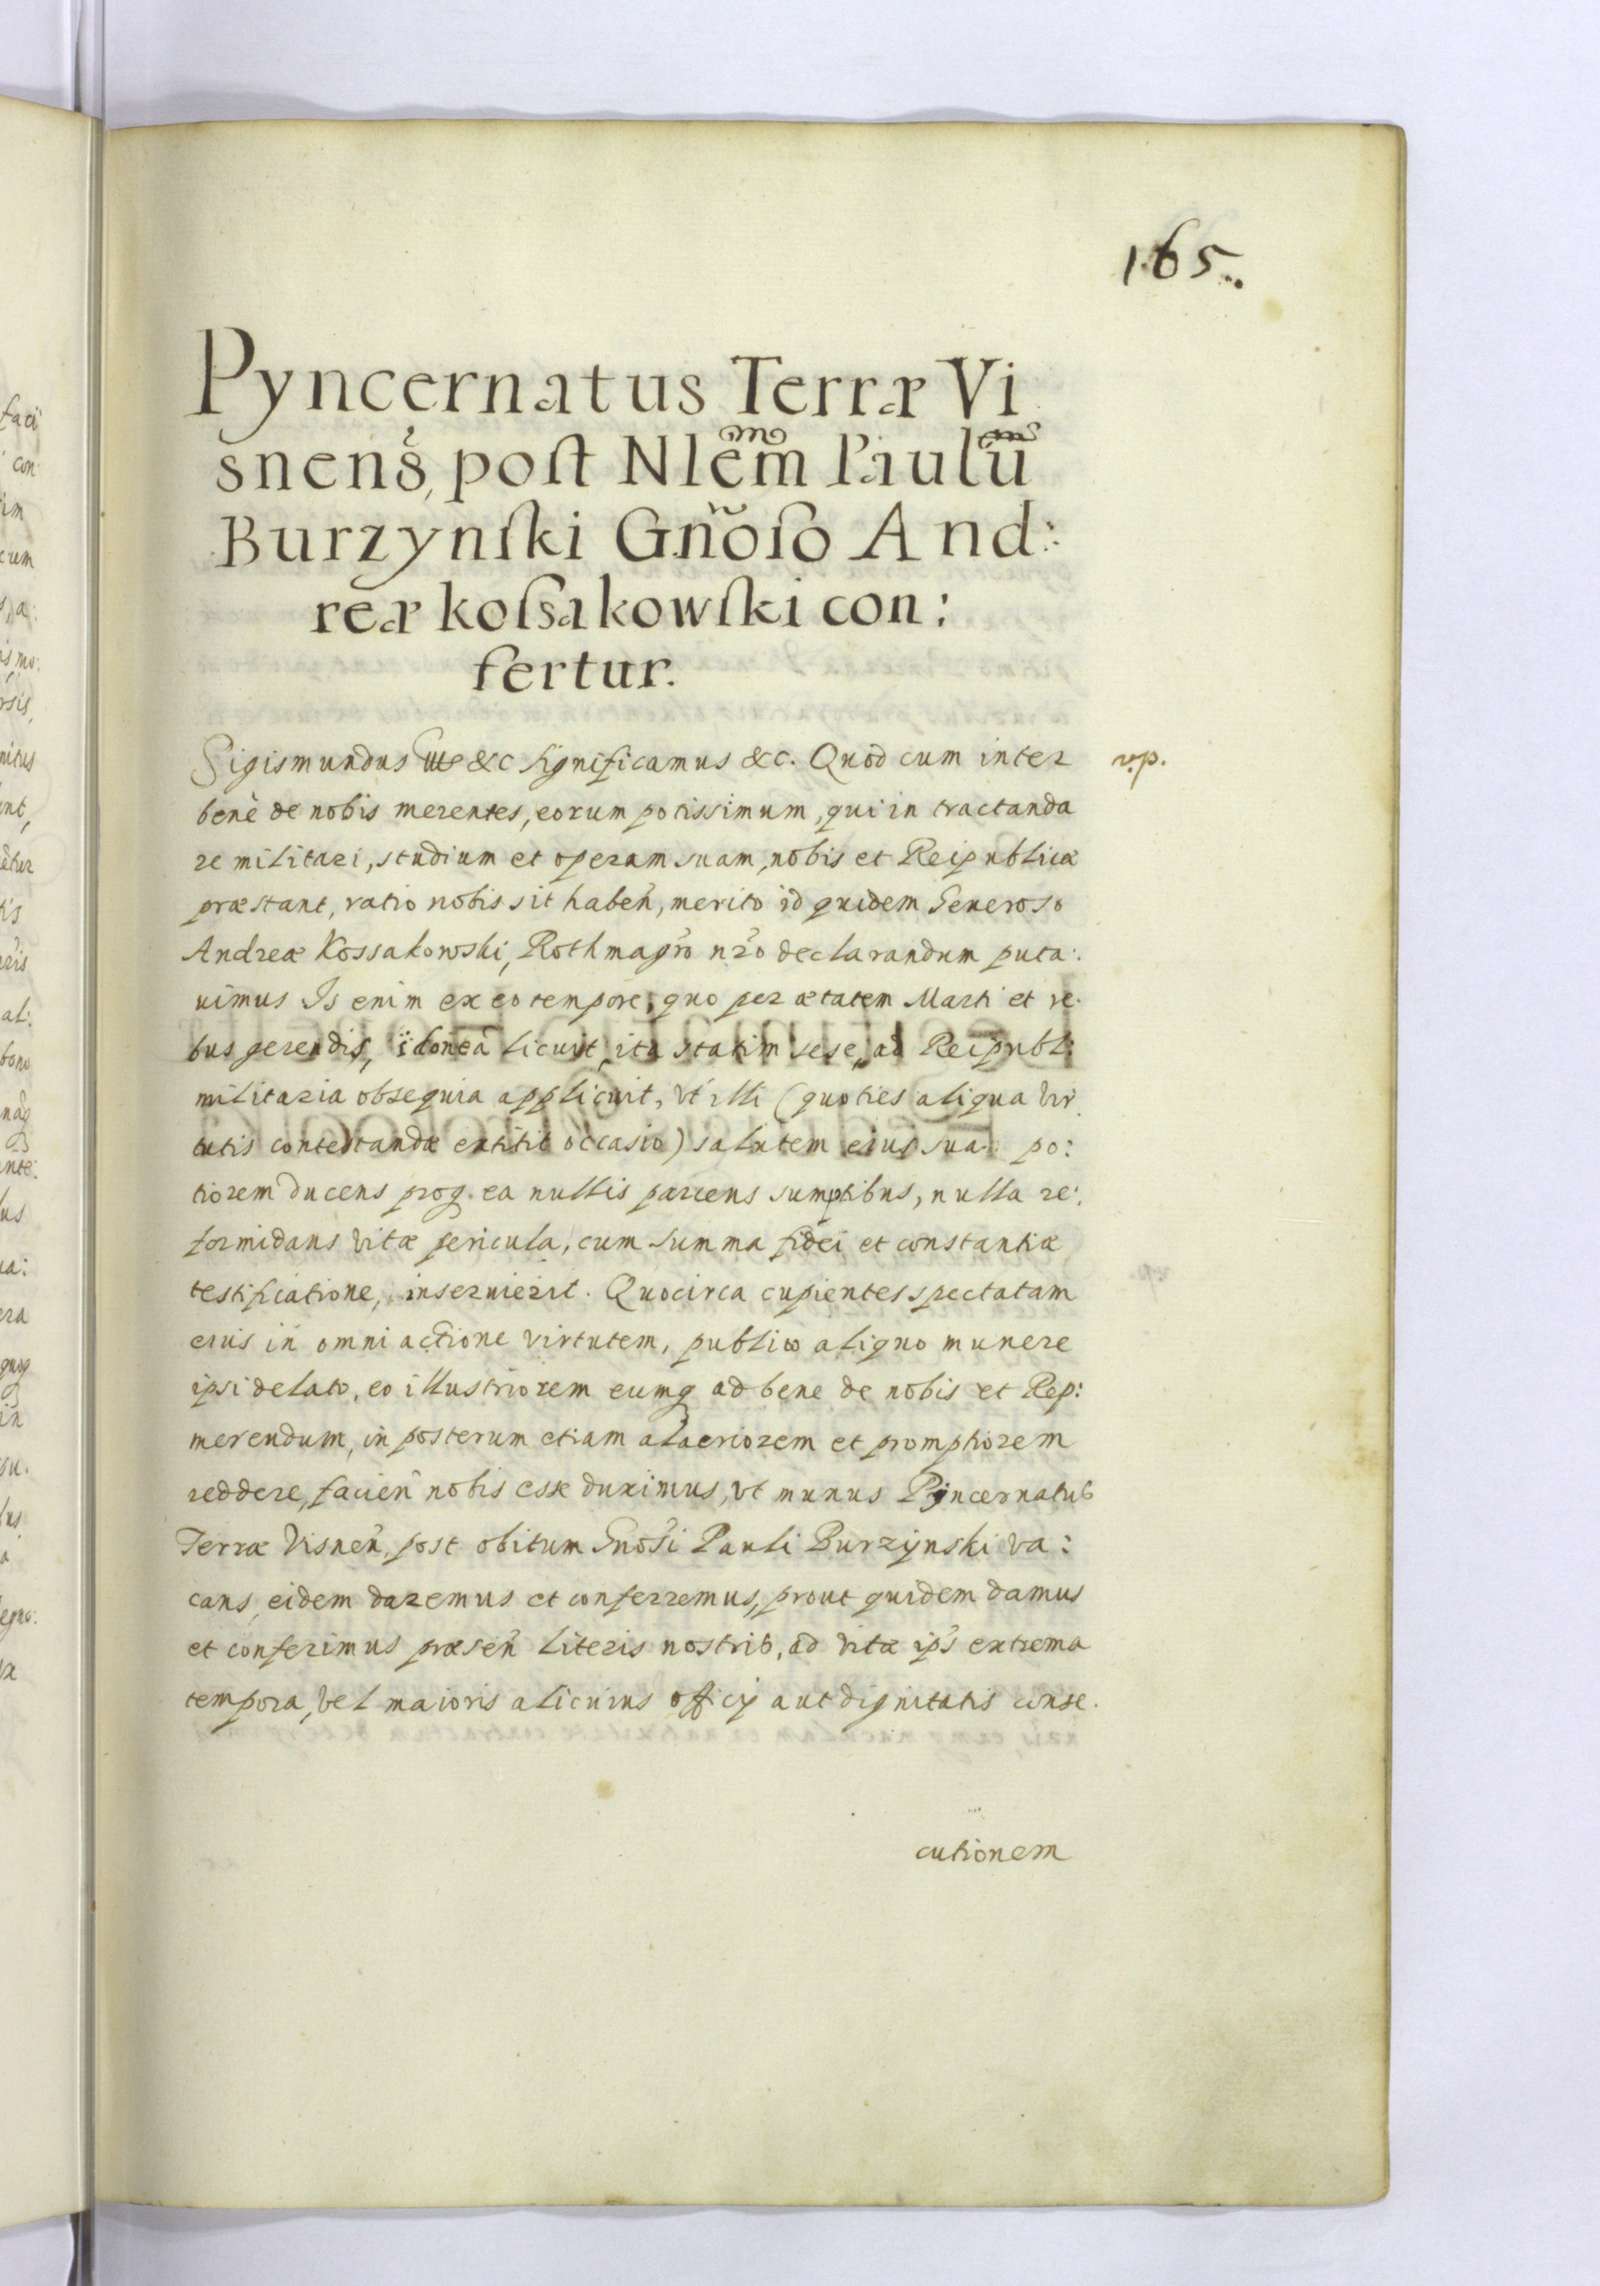 165.
Pyncernatus Terræ Vi
snens, post Nlem Paulum
Burzynski Gnoso And:
reæ Kossakowski con:
fertur.
Sigismundus &c significamus &c. Quod cum inter
v.p.
benè de nobis merentes, eorum potissimum, qui in tractanda
re militari, studium et operam suam, nobis et Reipublicæ
præstant, ratio nobis sit haben, merito id quidem Generoso
Andreæ Kossakowski, Rothmagro nro declarandum puta:
uimus Is enim ex eo tempore, quo per ætatem Marti et re.
bus gerendis, idonea licuit, ita statim sese, ad Reipubl:
militaria obsequia applicuit, vt illi (quoties aliqua vir
tutis contestandæ extitit occasio) salutem eius sua po:
tiorem ducens proq. ea nullis parcens sumptibus, nulla re:
formidans vitæ pericula, cum summa fidei et constantiæ
testificatione, inseruierit. Quocirca cupientes spectatam
eius in omni actione virtutem, publico aliquo munere
ipsi delato, eo illustriorem eumq ad bene de nobis et Rep:
merendum, in posterum etiam alacriorem et promptiorem
reddere, facien nobis esse duximus, vt munus Pyncernatus
Terræ Visnen, post obitum Gnosi Pauli Burzynski va:
cans, eidem daremus et conferremus, prout quidem damus
et conferimus præsen literis nostris, ad vitæ ips extrema
tempora, vel maioris alicuius officij aut dignitatis conse.
cutionem